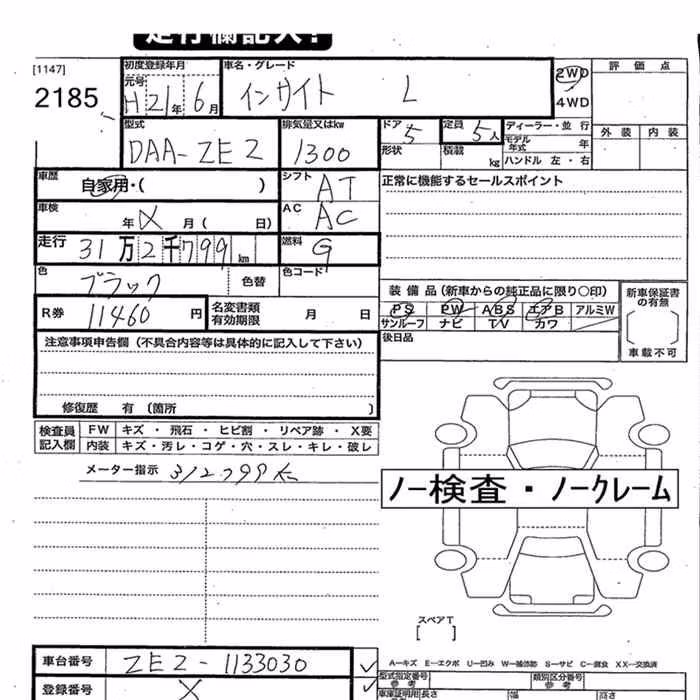 走行欄記入!
[1147]
2185
初度登録年月
元号
H21年6月
車名・グレード
インサイト L
2WD
4WD
評価点
外装 内装
型式
DAA-ZE2
排気量又はkw
1300
ドア
5
形状
定員
5人
積載 kg
ディーラー・並行
モデル年式 年
ハンドル 左・右
車歴
自家用・( )
シフト
AT
正常に機能するセールスポイント
車検
年 X 月 ( 日)
AC
AC
走行
31万2千799km
燃料
G
色
ブラック
色替
色コード
R券
11460円
名変書類
有効期限 月 日
装備品 (新車からの純正品に限り○印)
PS PW ABS エアB アルミW
サンルーフ ナビ TV カワ
後日品
新車保証書
の有無
[ ]
車載不可
注意事項申告欄 (不具合内容等は具体的に記入して下さい)
修復歴 有 (箇所 )
検査員
記入欄
FW キズ ・ 飛石 ・ ヒビ割 ・ リペア跡 ・ X要
内装 キズ・汚レ・コゲ・穴・スレ・キレ・破レ
メーター指示 312799K
ノー検査・ノークレーム
スペアT
[ ]
車台番号 ZE2-1133030
登録番号 X
A…キズ E…エクボ U…凹み W…補修跡 S…サビ C…腐食 XX…交換済
型式指定番号
参考
類別区分番号
参考
車庫証明用
参考
長さ 幅 高さ